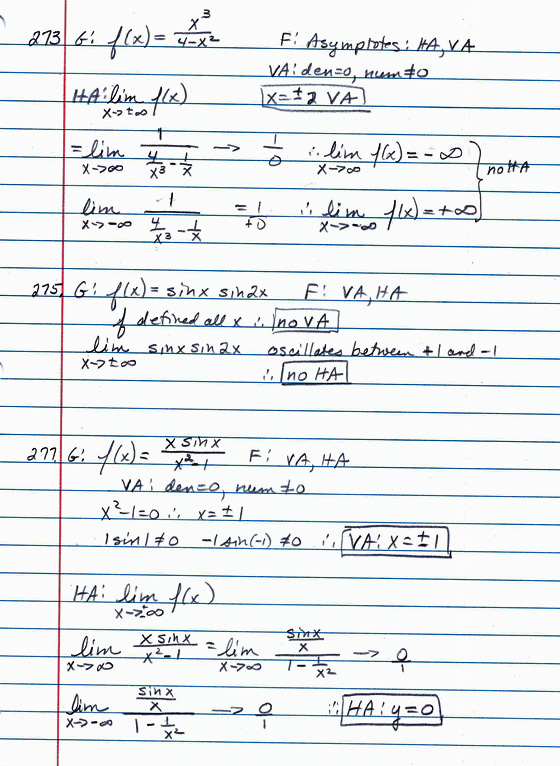 273 G: f(x) = x³/(4-x²) F: Asymptotes: HA, VA
VA: den=0, num≠0
HA: lim x→±∞ f(x) x=±2 VA
= lim x→∞ 1/(4/x³ - 1/x) → 1/0 ∴ lim x→∞ f(x) = -∞
} no HA
lim x→-∞ 1/(4/x³ - 1/x) = 1/+0 ∴ lim x→-∞ f(x) = +∞
275. G: f(x) = sinx sin2x F: VA, HA
f defined all x ∴ no VA
lim x→±∞ sinx sin2x oscillates between +1 and -1
∴ no HA
277. G: f(x) = x sinx/(x²-1) F: VA, HA
VA: den=0, num≠0
x²-1=0 ∴ x=±1
1 sin 1 ≠0 -1 sin(-1) ≠0 ∴ VA: x=±1
HA: lim x→±∞ f(x)
lim x→∞ x sinx/(x²-1) = lim x→∞ (sinx/x)/(1 - 1/x²) → 0/1
lim x→-∞ (sinx/x)/(1 - 1/x²) → 0/1 ∴ HA: y=0